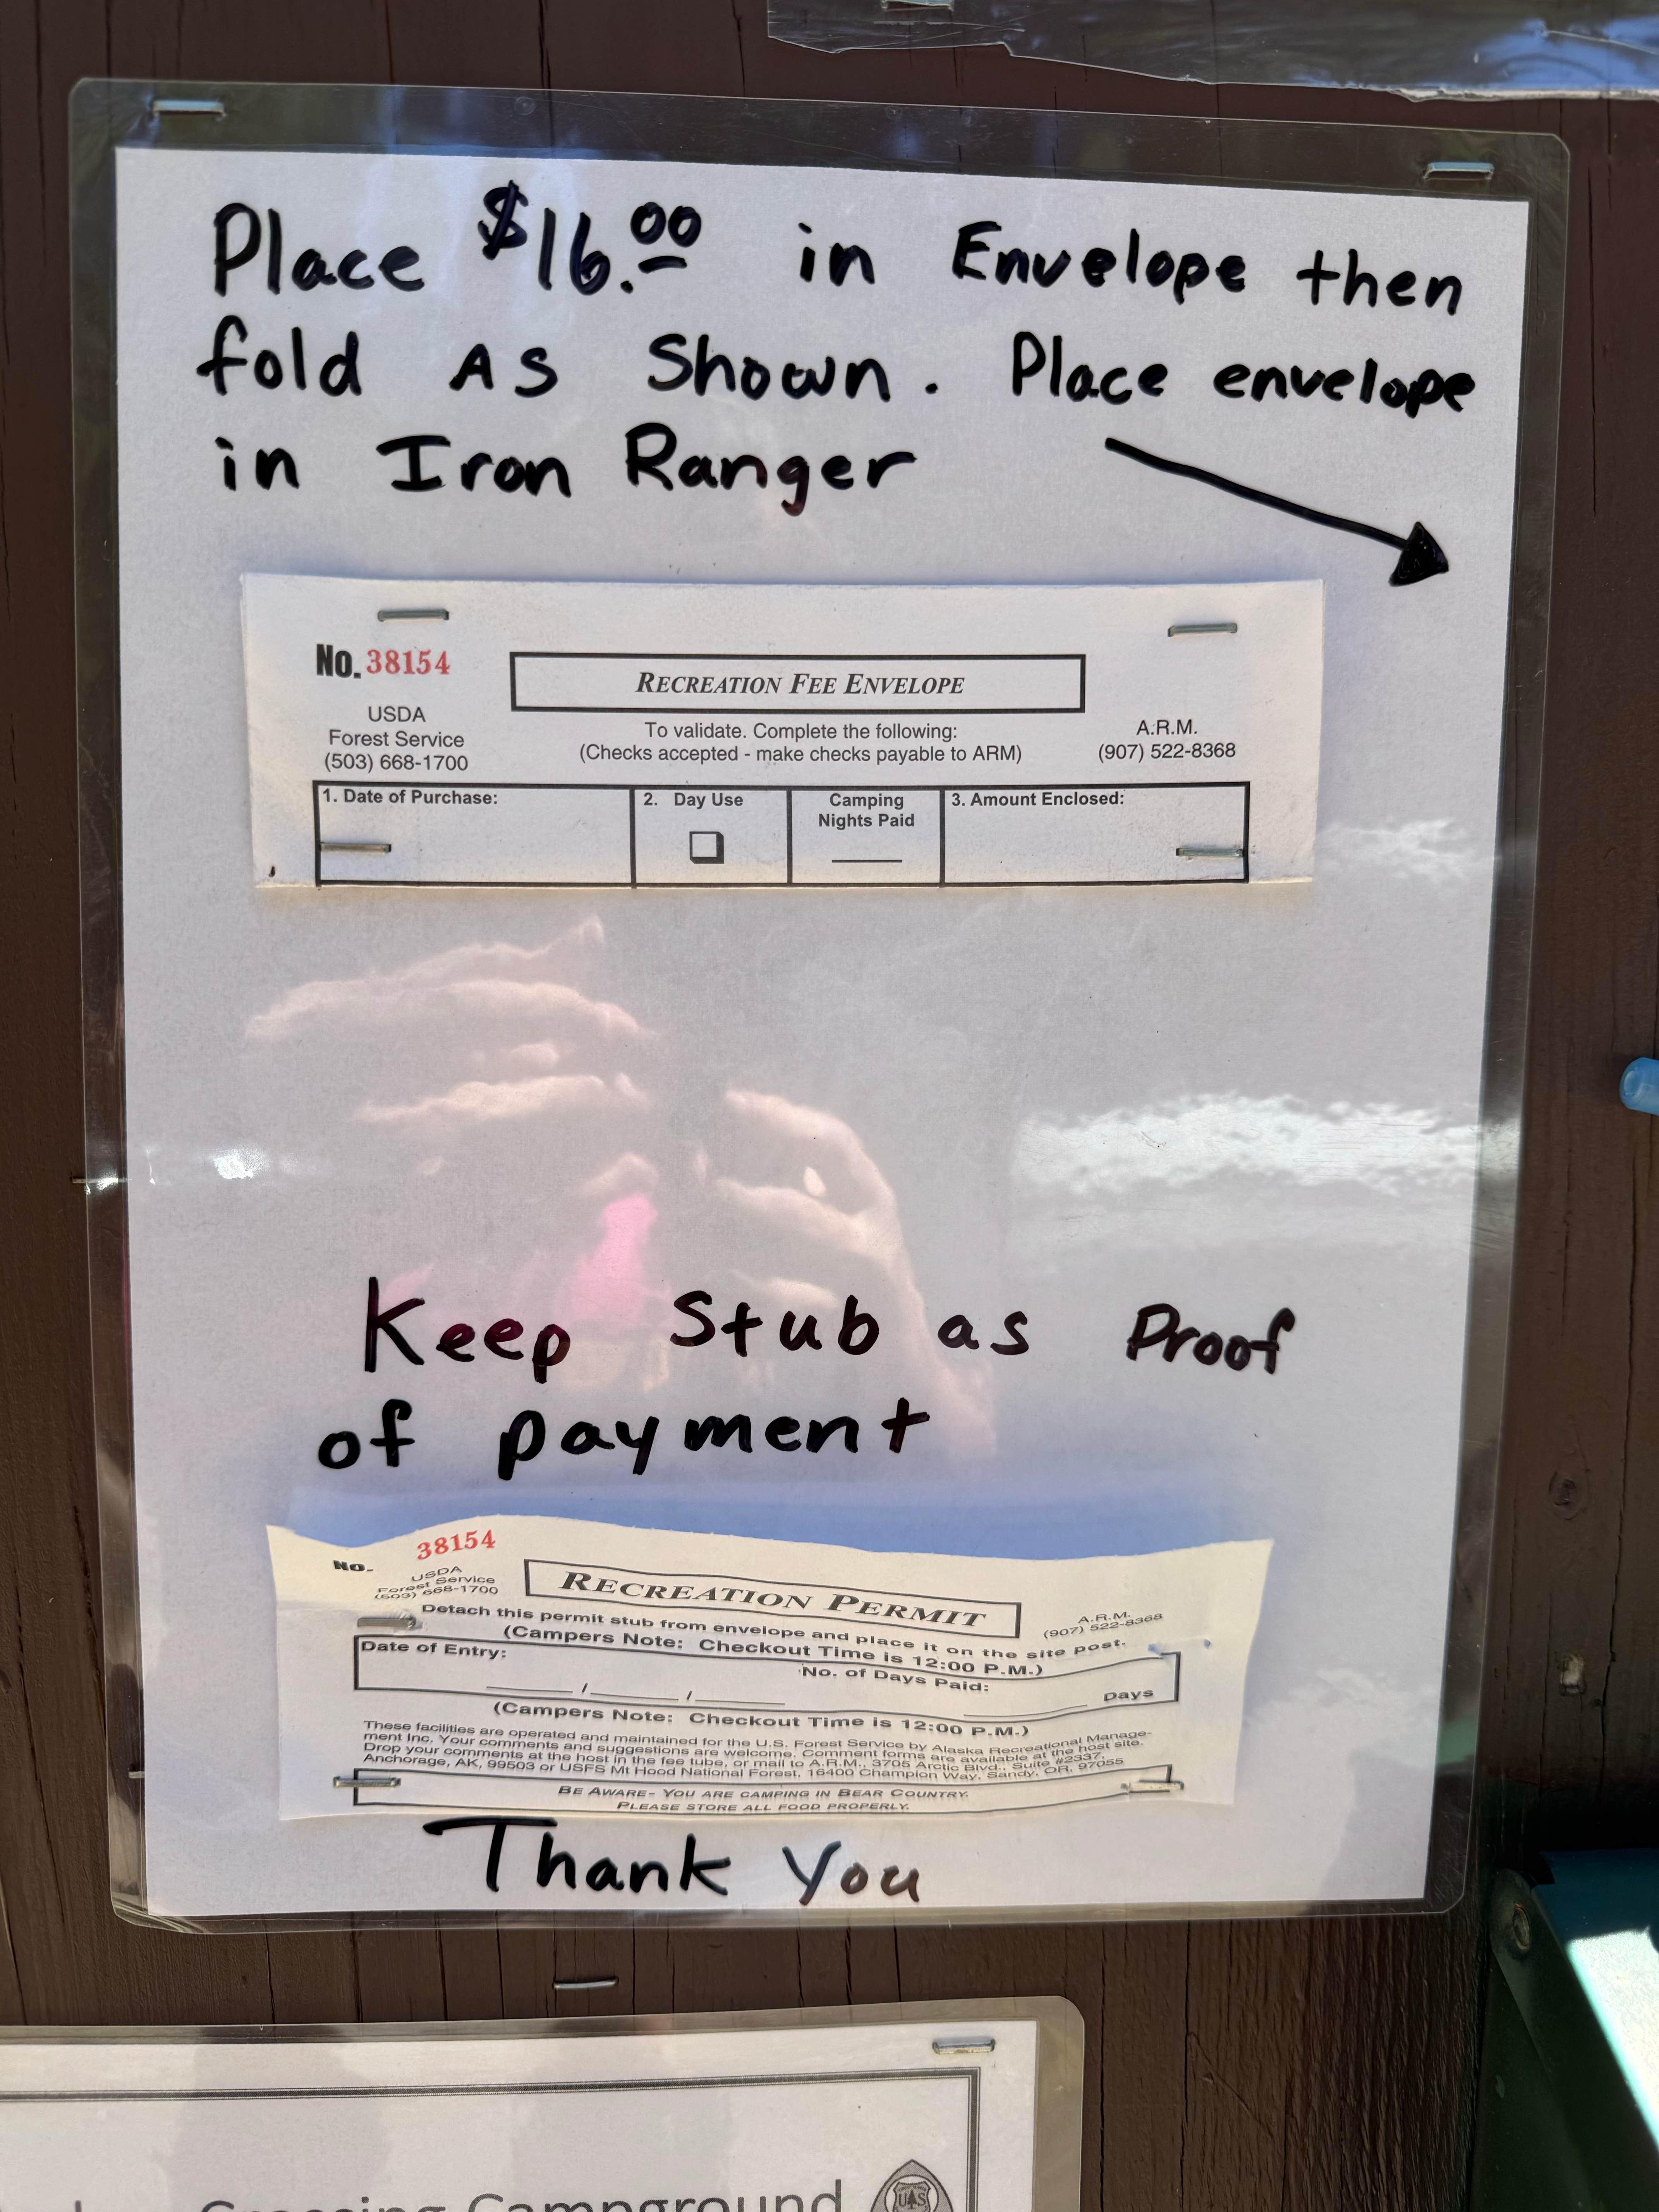 Place $16.00 in Envelope then
fold As Shown. Place envelope
in Iron Ranger
No. 38154
RECREATION FEE ENVELOPE
USDA
Forest Service
(503) 668-1700
To validate. Complete the following:
(Checks accepted - make checks payable to ARM)
A.R.M.
(907) 522-8368
1. Date of Purchase:
2. Day Use
Camping
Nights Paid
3. Amount Enclosed:
Keep Stub as Proof
of payment
No. 38154
USDA
Forest Service
(503) 668-1700
RECREATION PERMIT
A.R.M.
(907) 522-8368
Detach this permit stub from envelope and place it on the site post.
(Campers Note: Checkout Time is 12:00 P.M.)
Date of Entry:
No. of Days Paid:
____ / ____ / ____
Days
(Campers Note: Checkout Time is 12:00 P.M.)
These facilities are operated and maintained for the U.S. Forest Service by Alaska Recreational Manage-
ment Inc. Your comments and suggestions are welcome. Comment forms are available at the host site.
Drop your comments at the host in the fee tube, or mail to A.R.M., 3705 Arctic Blvd., Suite #2337,
Anchorage, AK, 99503 or USFS Mt Hood National Forest, 16400 Champion Way, Sandy, OR, 97055
BE AWARE- YOU ARE CAMPING IN BEAR COUNTRY.
PLEASE STORE ALL FOOD PROPERLY.
Thank You
Crossing Campground
U S